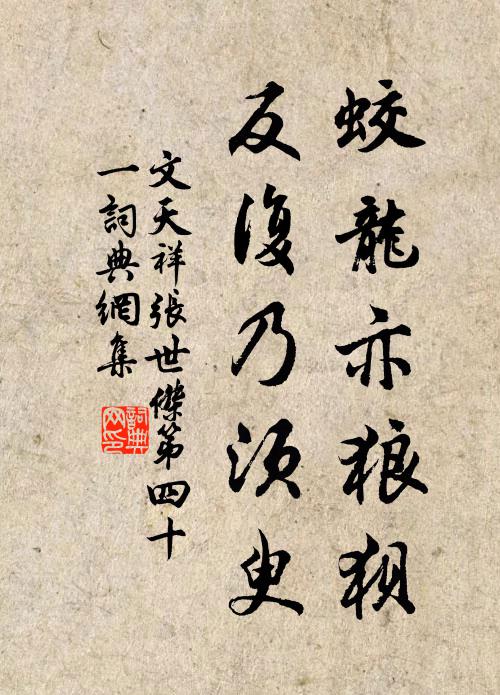 蛟龍亦狼狽
反復乃須臾
文天祥張世傑第四十
一詞典網集
詞典
网印